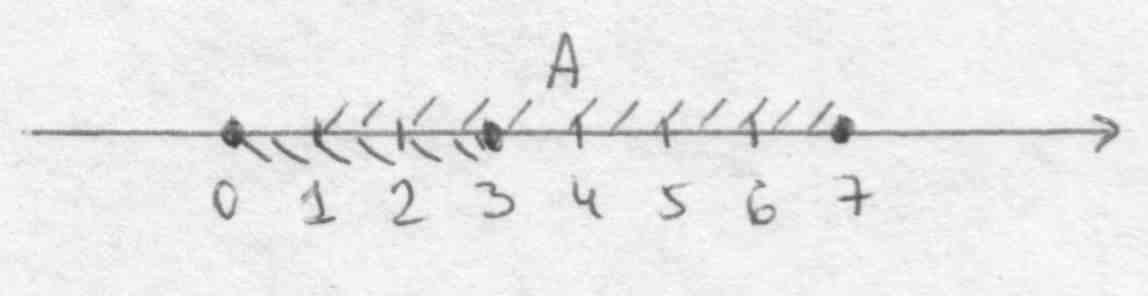 A
0 1 2 3 4 5 6 7